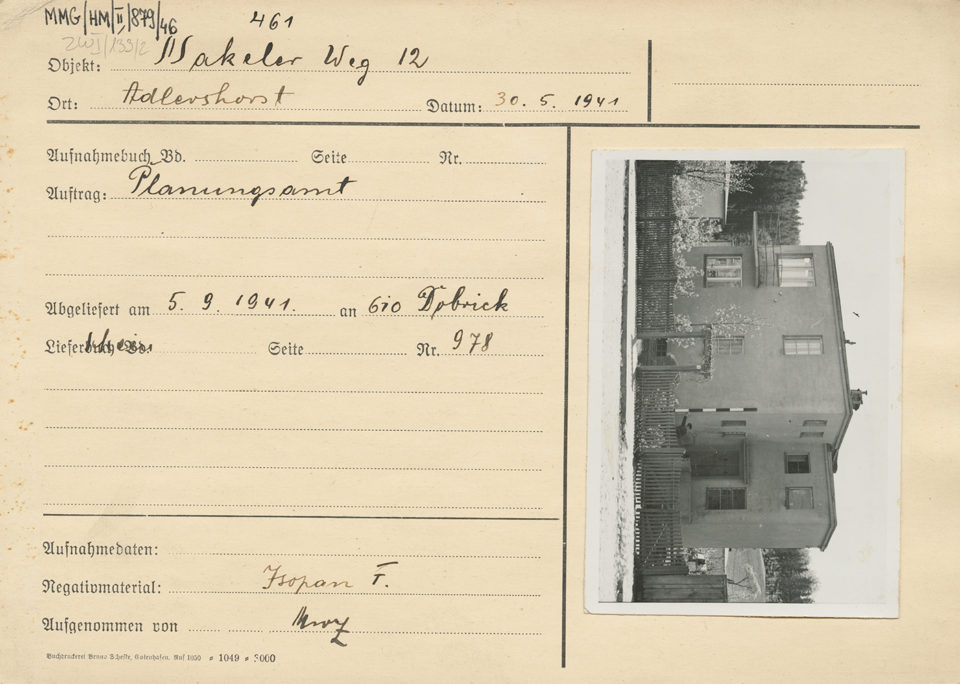 MMG/HM/II/879/46
461
ZWJ/139/2
Objekt: Wakeler Weg 12
Ort: Adlershorst Datum: 30. 5. 1941
Aufnahmebuch Bd. Seite Nr.
Auftrag: Planungsamt
Abgeliefert am 5. 9. 1941. an Dobrick
Lieferbuch Bd. Seite Nr. 978
Aufnahmedaten:
Negativmaterial: Isopan F.
Aufgenommen von
Buchdruckerei Benno Scheffke, Gotenhafen. Ruf 1050 * 1049 * 3000